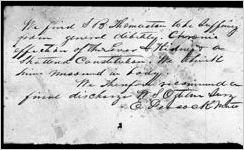 We find S B Thomaston to be suffering
from general debility. Chronic
affection of the Liver & Kidneys a
shattered Constitution. We think
him unsound in body.
We therefore recommend a
final discharge
E. Peacock